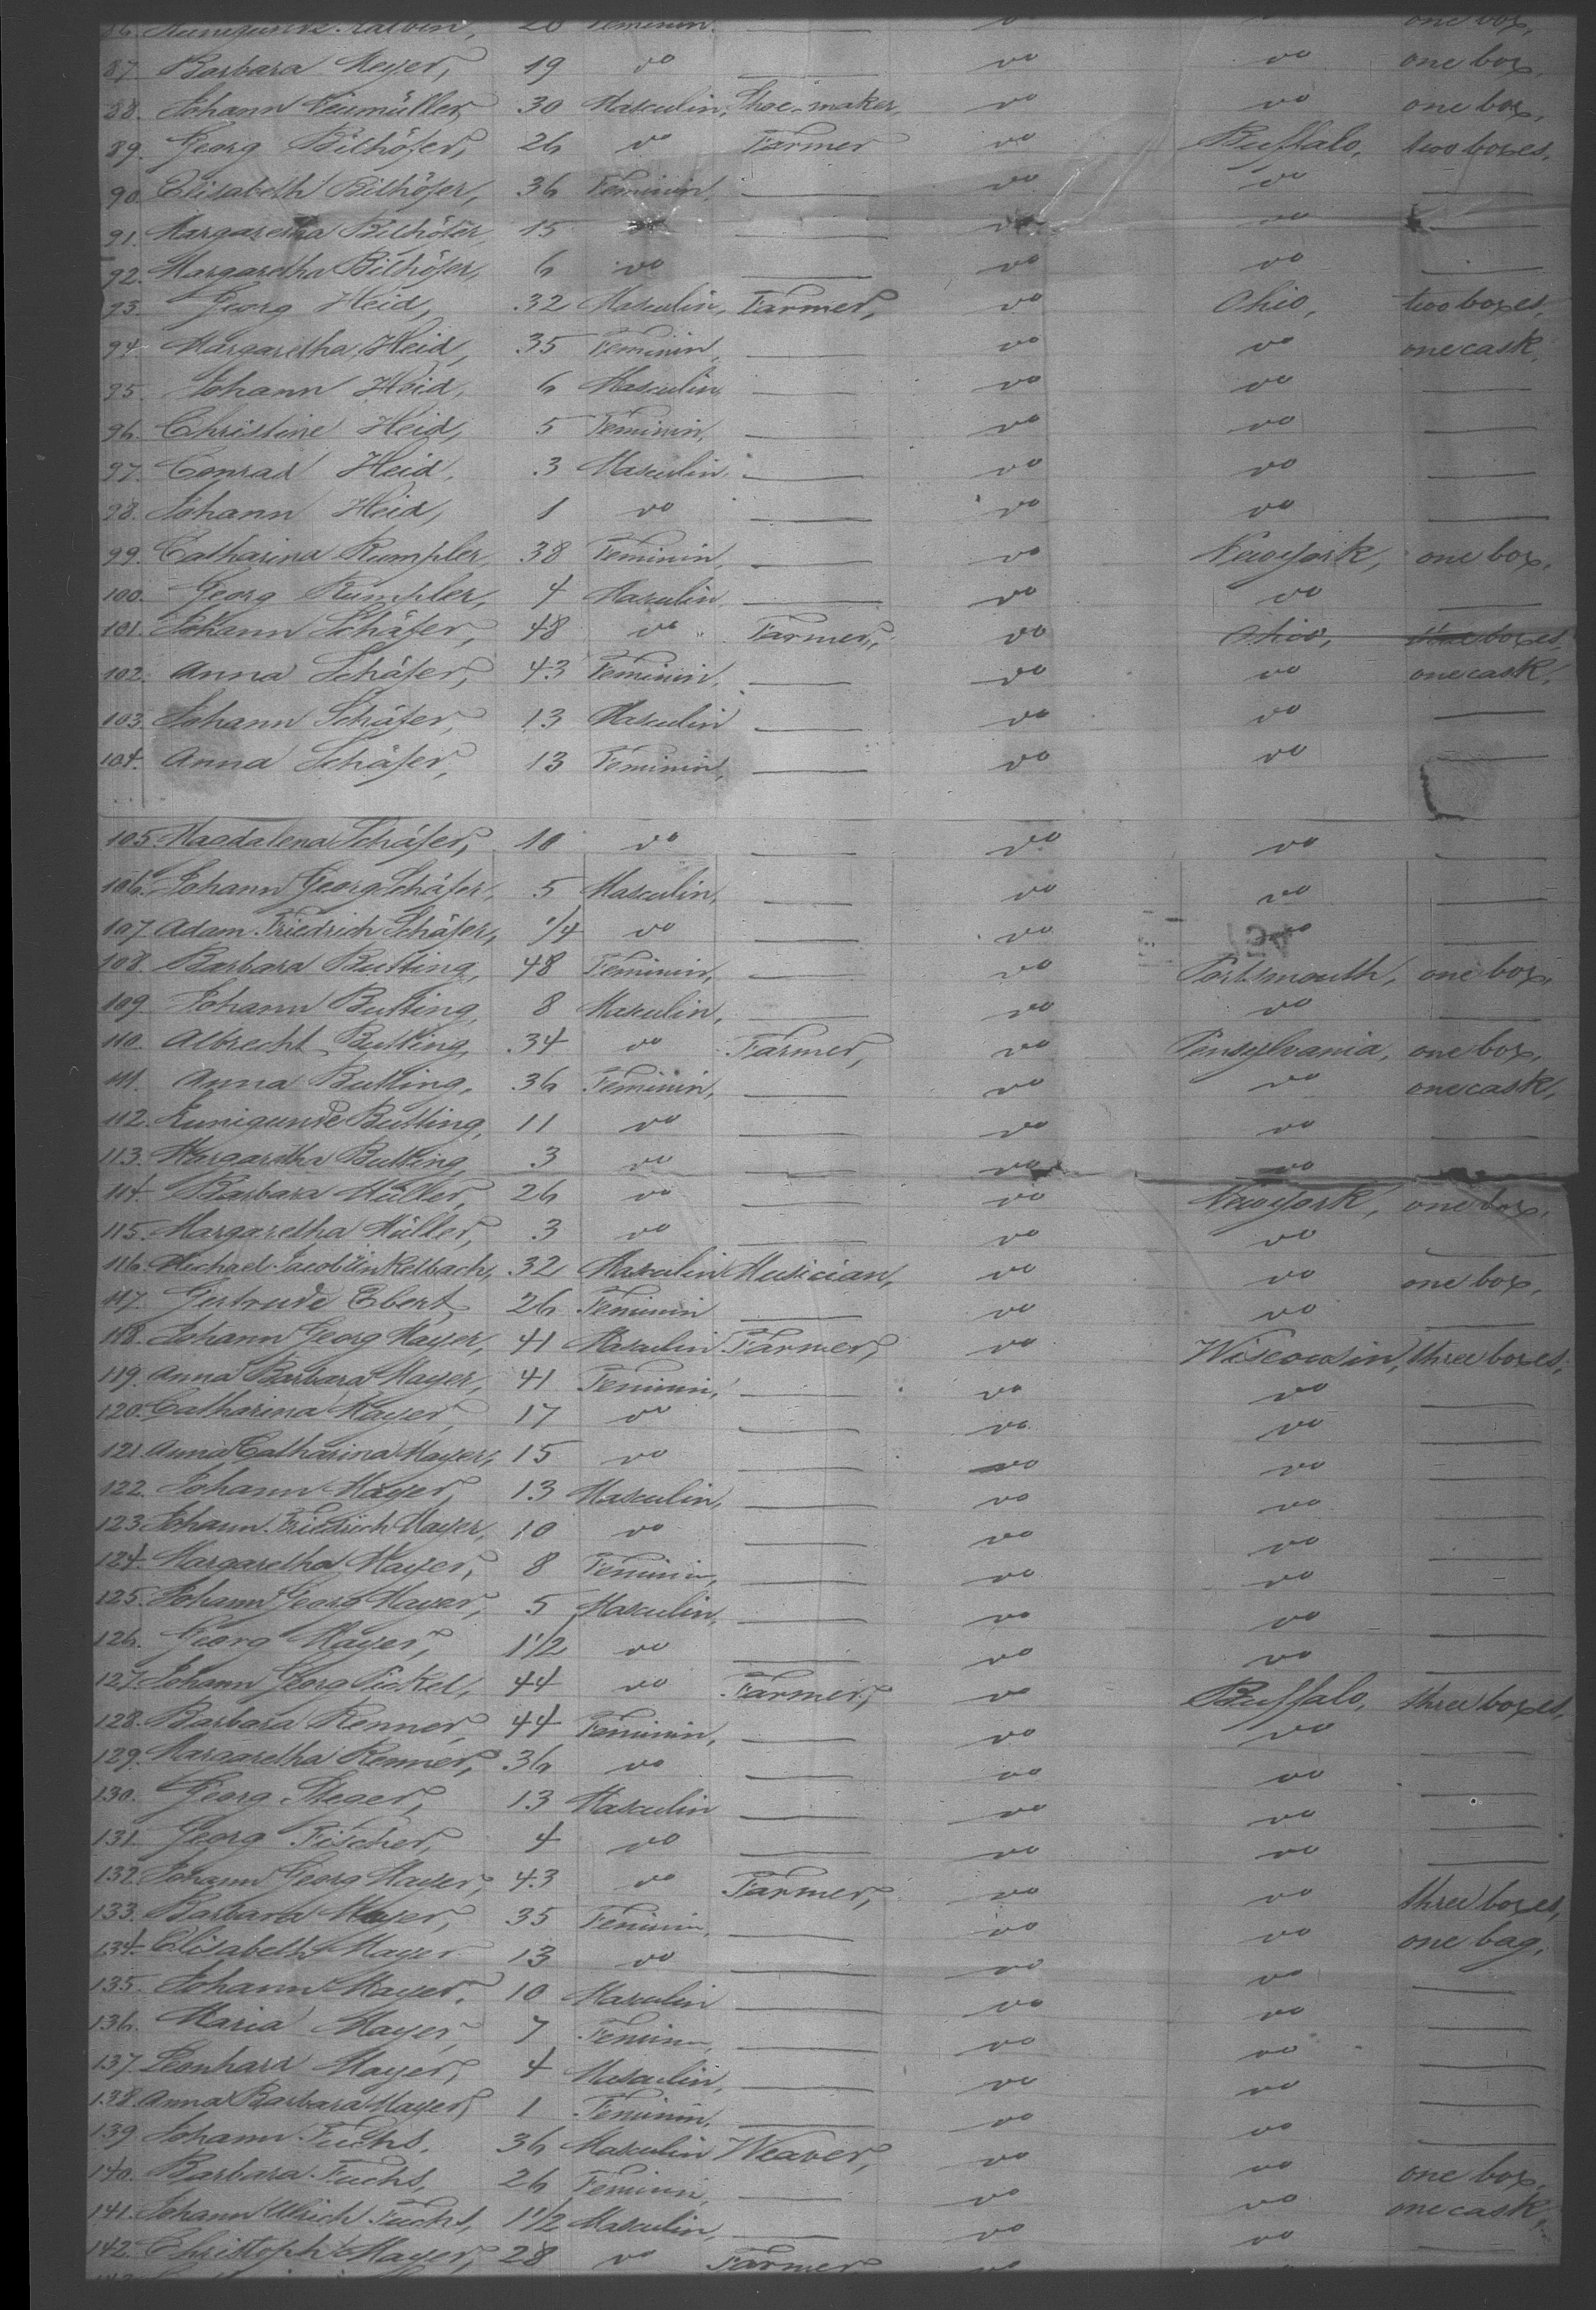 86. 20 Feminin. one box,
87. Barbara Meyer, 19 do — do do one box,
88. Johann 30 Masculin, Shoe-maker, do do one box,
89. Georg Bilhöfer, 26 do Farmer do Buffalo, two boxes,
90. Elisabeth Bilhöfer, 36 Feminin, — do do —
91. Margaretha Bilhöfer, 15 — do do —
92. Margaretha Bilhöfer, 6 do — do do —
93. Georg Heid, 32 Masculin, Farmer, do Ohio, two boxes,
94. Margaretha Heid, 35 Feminin, — do do one cask,
95. Johann Heid, 6 Masculin, — do do —
96. Christine Heid, 5 Feminin, — do do —
97. Conrad Heid, 3 Masculin, — do do —
98. Johann Heid, 1 do — do do —
99. Catharina Rumpler, 38 Feminin, — do Newyork, one box,
100. Georg Rumpler, 4 Masculin, — do do —
101. Johann Schäfer, 48 do Farmer, do Ohio, boxes,
102. Anna Schäfer, 43 Feminin, — do do one cask,
103. Johann Schäfer, 13 Masculin — do do —
104. Anna Schäfer, 13 Feminin, — do do —
105. Magdalena Schäfer, 10 do — do do —
106. Johann Georg Schäfer, 5 Masculin, — do do —
107. Adam Friedrich Schäfer, 1/4 do — do do —
108. Barbara Butting, 48 Feminin, — do Portsmouth, one box,
109. Johann Butting, 8 Masculin, — do do —
110. Albrecht Butting, 34 do Farmer, do Pensylvania, one box,
111. Anna Butting, 36 Feminin, — do do one cask,
112. Kunigunde Butting, 11 do — do do —
113. Margaretha Butting, 3 do — do do —
114. Barbara Müller, 26 do — do Newyork, one box,
115. Margaretha Müller, 3 do — do do —
116. Michael Jacob 32 Masculin Musician, do do one box,
117. Gertrude Ebert, 26 Feminin — do do
118. Johann Georg Mayer, 41 Masculin Farmer, do Wisconsin, three boxes,
119. Anna Barbara Mayer, 41 Feminin, — do do —
120. Catharina Mayer, 17 do — do do —
121. Anna Catharina Mayer, 15 do — do do —
122. Johann Mayer, 13 Masculin, — do do —
123. Johann Friedrich Mayer, 10 do — do do —
124. Margaretha Mayer, 8 Feminin, — do do —
125. Johann Georg Mayer, 5 Masculin, — do do —
126. Georg Mayer, 1 1/2 do — do do —
127. Johann Georg 44 do Farmer, do Buffalo, three boxes,
128. Barbara Renner, 44 Feminin, — do do —
129. Margaretha Renner, 36 do — do do —
130. Georg Steger, 13 Masculin — do do —
131. Georg Fischer, 4 do — do do —
132. Johann Georg Mayer, 43 do Farmer, do do three boxes,
133. Barbara Mayer, 35 Feminin, — do do one bag,
134. Elisabeth Mayer 13 do — do do —
135. Johann Mayer, 10 Masculin — do do —
136. Maria Mayer, 7 Feminin, — do do —
137. Leonhard Mayer, 4 Masculin, — do do —
138. Anna Barbara Mayer, 1 Feminin, — do do —
139. Johann Fuchs, 36 Masculin Weaver, do do one box,
140. Barbara Fuchs, 26 Feminin, — do do one cask,
141. Johann Ulrich Fuchs, 1 1/2 Masculin, — do do —
142. Christoph Mayer, 28 do Farmer do